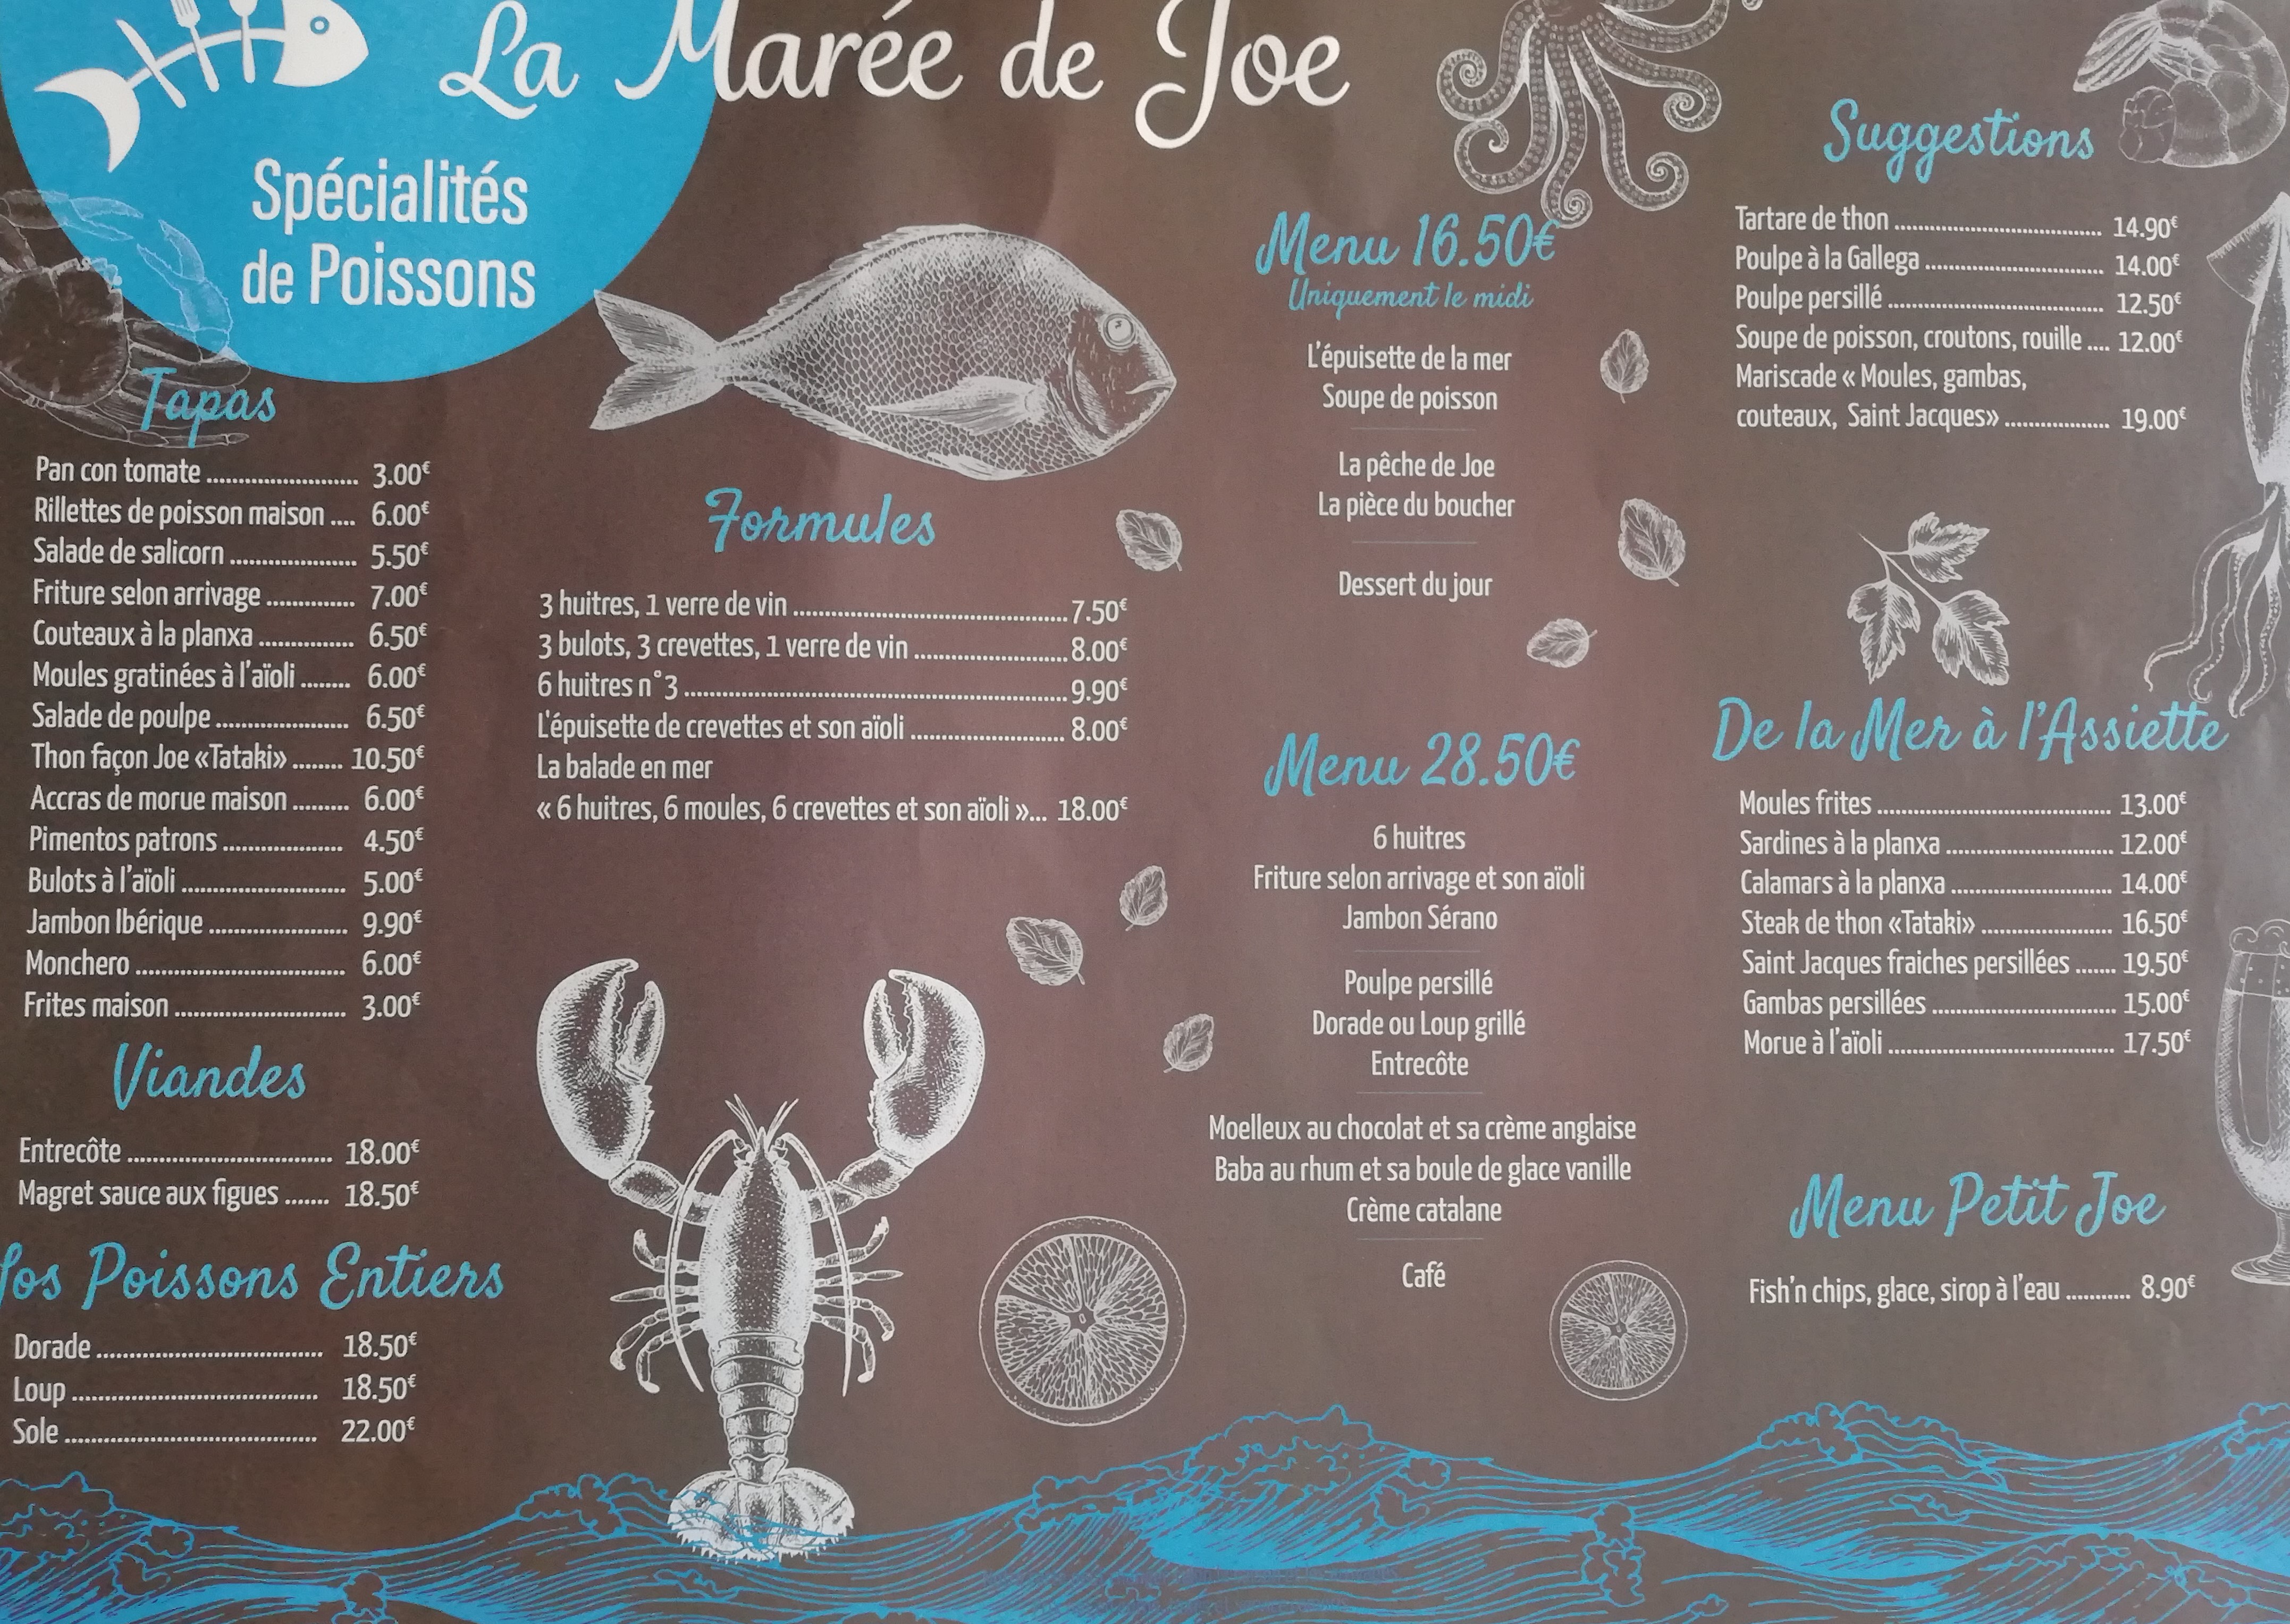 La Marée de Joe
Spécialités
de Poissons
Tapas
Pan con tomate ........................ 3.00€
Rillettes de poisson maison .... 6.00€
Salade de salicorn .................... 5.50€
Friture selon arrivage .............. 7.00€
Couteaux à la planxa ............... 6.50€
Moules gratinées à l'aïoli ........ 6.00€
Salade de poulpe ..................... 6.50€
Thon façon Joe «Tataki» ........ 10.50€
Accras de morue maison ......... 6.00€
Pimentos patrons ................... 4.50€
Bulots à l'aïoli .......................... 5.00€
Jambon Ibérique ...................... 9.90€
Monchero ................................. 6.00€
Frites maison ........................... 3.00€
Viandes
Entrecôte ................................. 18.00€
Magret sauce aux figues ....... 18.50€
Poissons Entiers
Dorade .................................... 18.50€
Loup ....................................... 18.50€
Sole ........................................ 22.00€
Formules
3 huitres, 1 verre de vin ............................................ 7.50€
3 bulots, 3 crevettes, 1 verre de vin ........................ 8.00€
6 huitres n°3 ............................................................. 9.90€
L'épuisette de crevettes et son aïoli ........................ 8.00€
La balade en mer
« 6 huitres, 6 moules, 6 crevettes et son aïoli »... 18.00€
Menu 16.50€
Uniquement le midi
L'épuisette de la mer
Soupe de poisson
La pêche de Joe
La pièce du boucher
Dessert du jour
Menu 28.50€
6 huitres
Friture selon arrivage et son aïoli
Jambon Sérano
Poulpe persillé
Dorade ou Loup grillé
Entrecôte
Moelleux au chocolat et sa crème anglaise
Baba au rhum et sa boule de glace vanille
Crème catalane
Café
Suggestions
Tartare de thon .................................. 14.90€
Poulpe à la Gallega ............................. 14.00€
Poulpe persillé ................................... 12.50€
Soupe de poisson, croutons, rouille .... 12.00€
Mariscade « Moules, gambas,
couteaux, Saint Jacques» .................. 19.00€
De la Mer à l'Assiette
Moules frites ....................................... 13.00€
Sardines à la planxa ............................ 12.00€
Calamars à la planxa ........................... 14.00€
Steak de thon «Tataki» ...................... 16.50€
Saint Jacques fraiches persillées ....... 19.50€
Gambas persillées .............................. 15.00€
Morue à l'aïoli ..................................... 17.50€
Menu Petit Joe
Fish'n chips, glace, sirop à l'eau ........... 8.90€